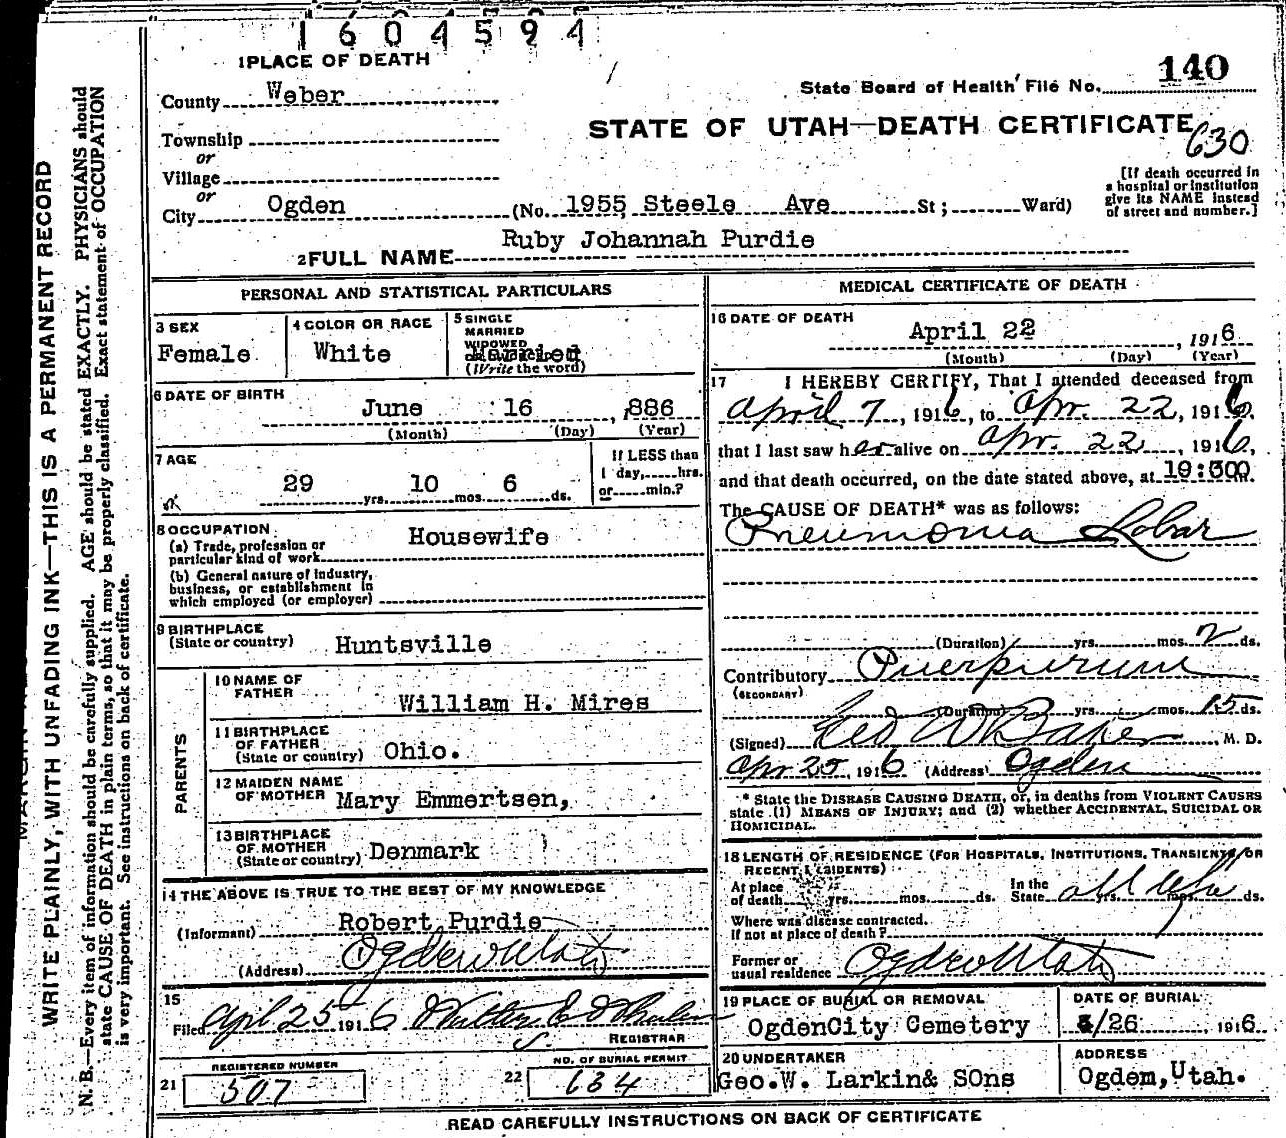 1604594
1 PLACE OF DEATH
County Weber
State Board of Health File No. 140
STATE OF UTAH—DEATH CERTIFICATE
630
Township
or
Village
or
City Ogden (No. 1955 Steele Ave St; Ward)
[If death occurred in
a hospital or institution
give its NAME instead
of street and number.]
2 FULL NAME Ruby Johannah Purdie
PERSONAL AND STATISTICAL PARTICULARS
3 SEX
Female
4 COLOR OR RACE
White
5 SINGLE
MARRIED
WIDOWED
Married
(Write the word)
6 DATE OF BIRTH
June 16, 1886
(Month) (Day) (Year)
7 AGE
29 yrs. 10 mos. 6 ds.
If LESS than
1 day, hrs.
or min.?
8 OCCUPATION
(a) Trade, profession or
particular kind of work Housewife
(b) General nature of industry,
business, or establishment in
which employed (or employer)
9 BIRTHPLACE
(State or country) Huntsville
PARENTS
10 NAME OF
FATHER William H. Mires
11 BIRTHPLACE
OF FATHER
(State or country) Ohio.
12 MAIDEN NAME
OF MOTHER Mary Emmertsen,
13 BIRTHPLACE
OF MOTHER
(State or country) Denmark
14 THE ABOVE IS TRUE TO THE BEST OF MY KNOWLEDGE
(Informant) Robert Purdie
(Address) Ogden Utah
15
Filed April 25 1916
REGISTRAR
REGISTERED NUMBER
21 507
NO. OF BURIAL PERMIT
22 634
MEDICAL CERTIFICATE OF DEATH
16 DATE OF DEATH
April 22, 1916
(Month) (Day) (Year)
17 I HEREBY CERTIFY, That I attended deceased from
April 7, 1916, to Apr. 22, 1916,
that I last saw her alive on Apr. 22, 1916,
and that death occurred, on the date stated above, at
The CAUSE OF DEATH* was as follows:
Pneumonia Lobar
(Duration) yrs. mos. 2 ds.
Contributory Puerpurium
(SECONDARY)
(Duration) yrs. mos. 15 ds.
(Signed) Geo W Baker, M. D.
Apr 25, 1916 (Address) Ogden
* State the DISEASE CAUSING DEATH, or, in deaths from VIOLENT CAUSES
state (1) MEANS OF INJURY; and (2) whether ACCIDENTAL, SUICIDAL OR
HOMICIDAL.
18 LENGTH OF RESIDENCE (FOR HOSPITALS, INSTITUTIONS, TRANSIENTS, OR
RECENT RESIDENTS)
At place
of death yrs. mos. ds.
In the
State all life yrs. mos. ds.
Where was disease contracted.
If not at place of death?
Former or
usual residence Ogden Utah
19 PLACE OF BURIAL OR REMOVAL
OgdenCity Cemetery
DATE OF BURIAL
4/26 1916
20 UNDERTAKER
Geo.W. Larkin& SOns
ADDRESS
Ogdem,Utah.
READ CAREFULLY INSTRUCTIONS ON BACK OF CERTIFICATE
WRITE PLAINLY, WITH UNFADING INK—THIS IS A PERMANENT RECORD
N. B.—Every item of information should be carefully supplied. AGE should be stated EXACTLY. PHYSICIANS should
state CAUSE OF DEATH in plain terms, so that it may be properly classified. Exact statement of OCCUPATION
is very important. See instructions on back of certificate.